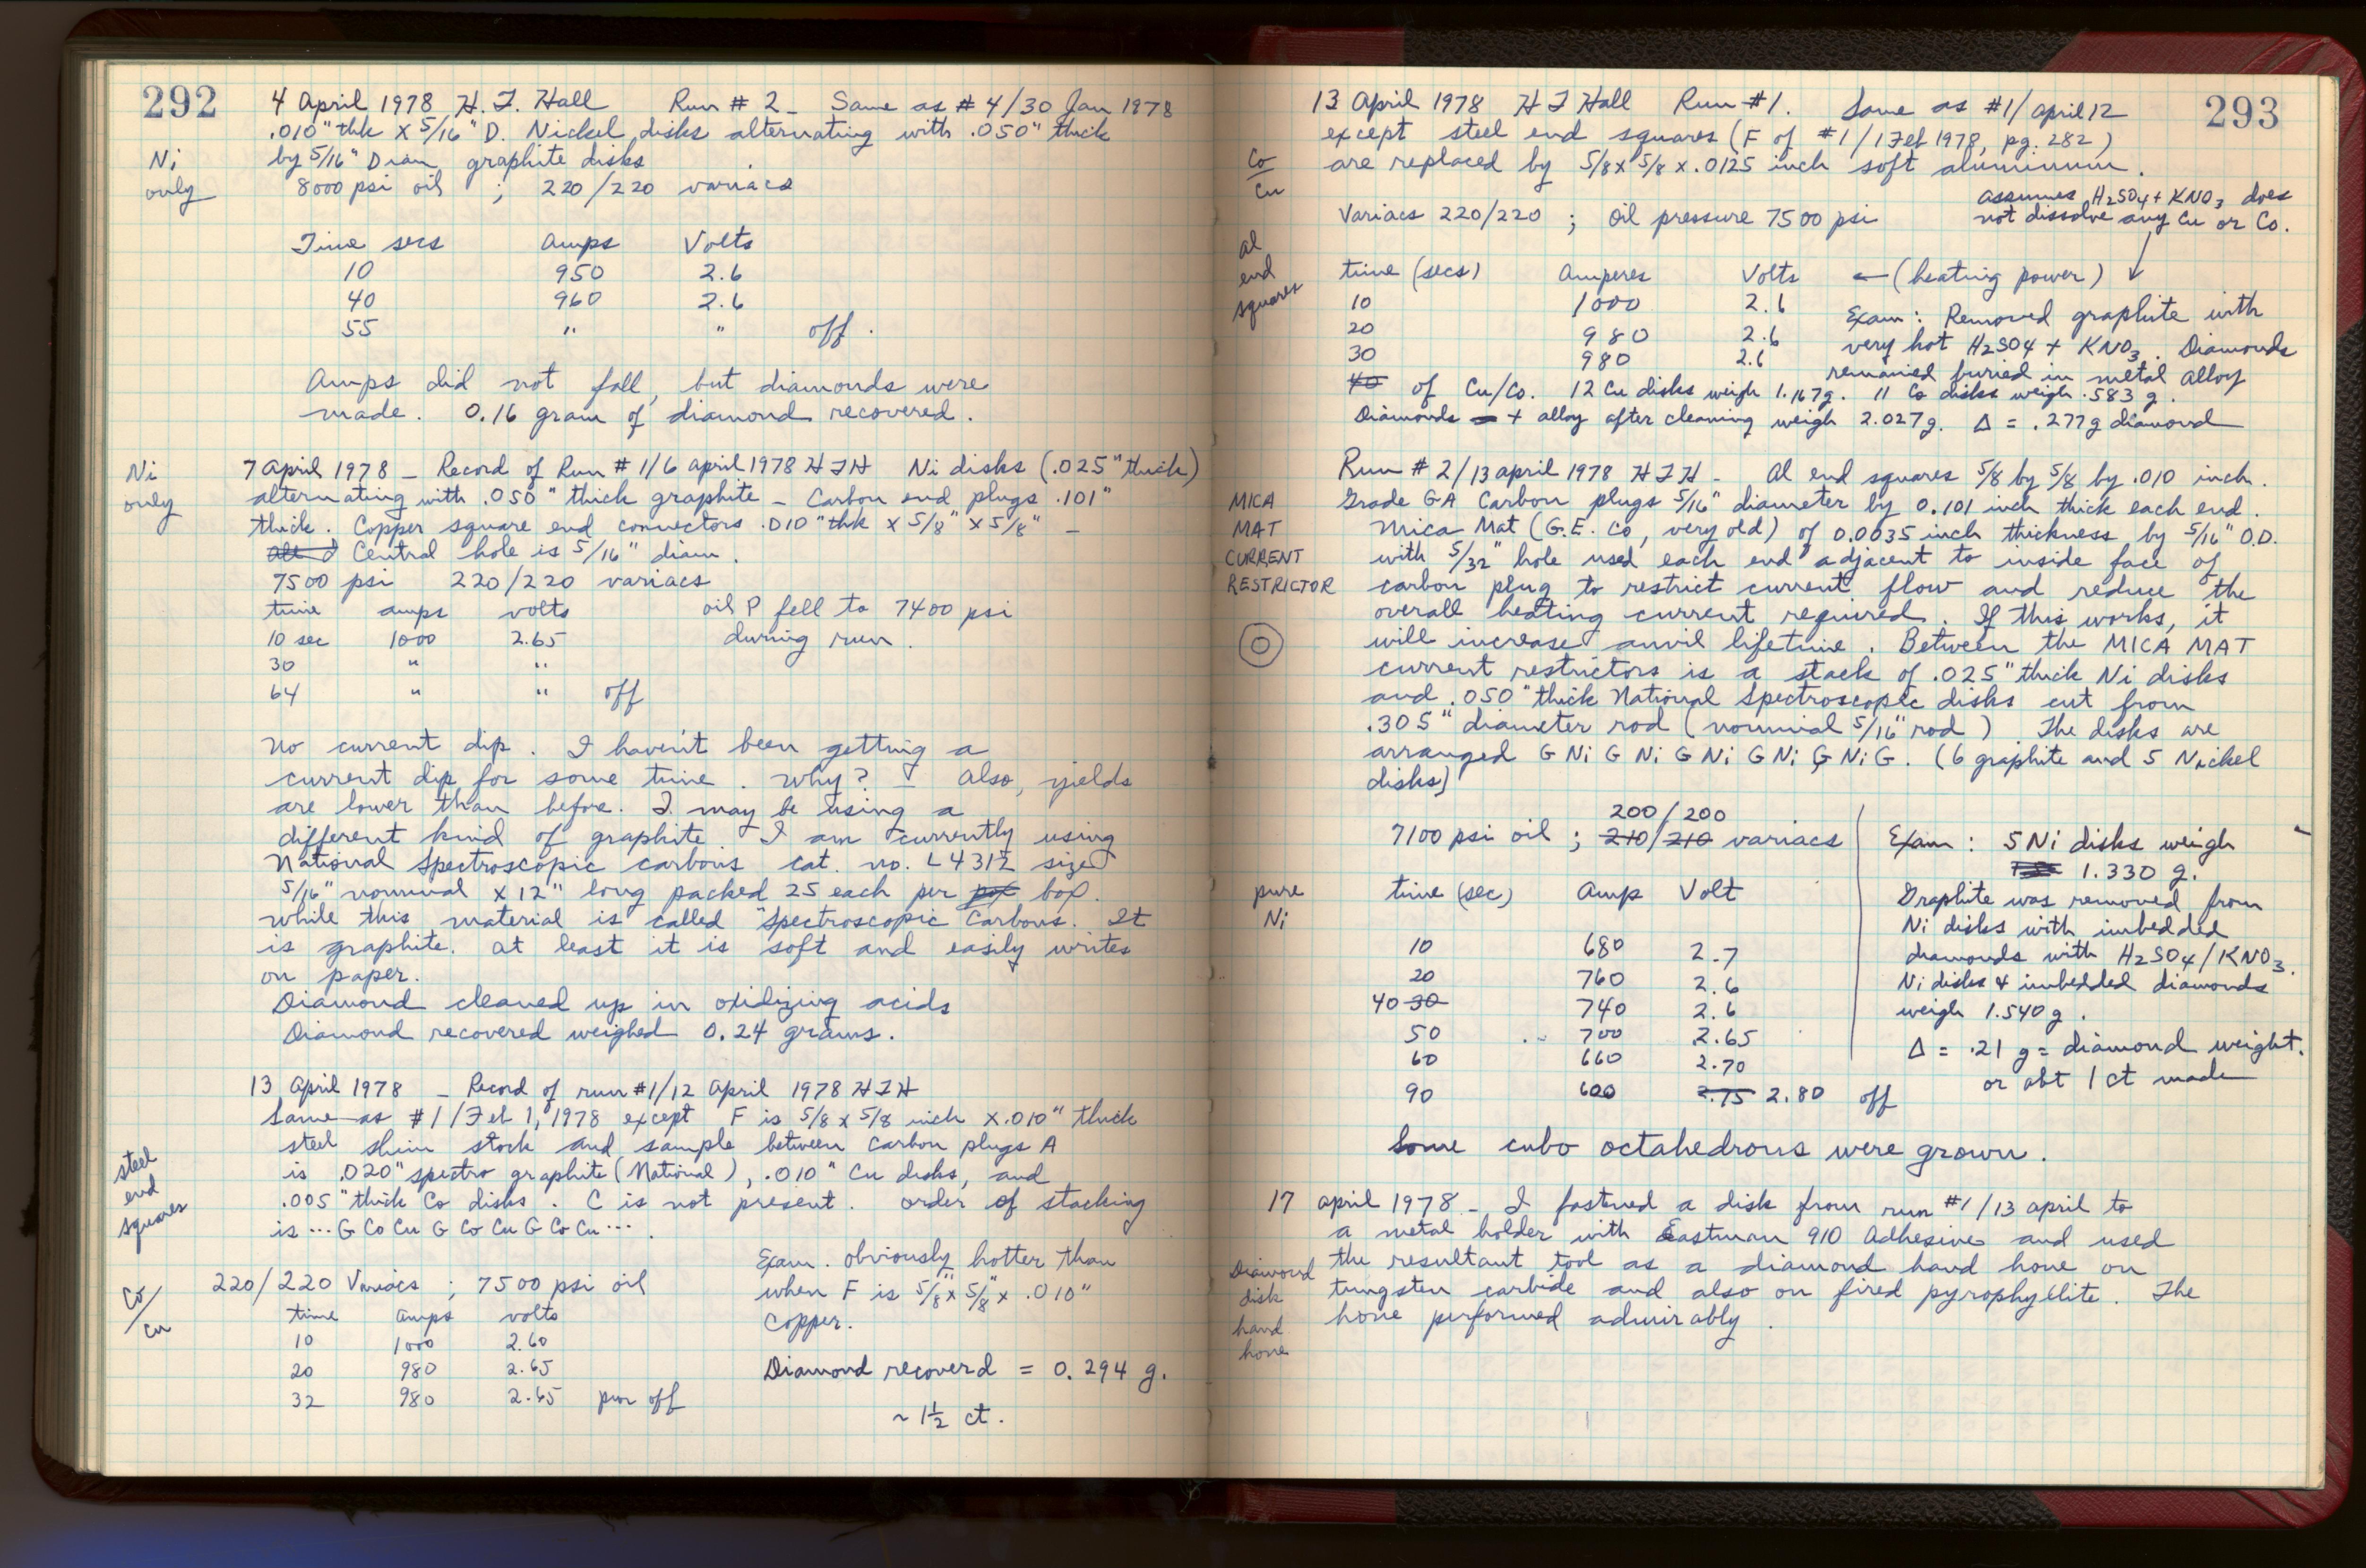 292
4 April 1978 H. T. Hall Run # 2 - Same as # 4/30 Jan 1978
.010" thk x 5/16" D. Nickel disks alternating with .050" thick
Ni
only
by 5/16" Diam graphite disks
8000 psi oil ; 220/220 variacs
Time secs Amps Volts
10 950 2.6
40 960 2.6
55 " " off.
Amps did not fall, but diamonds were
made. 0.16 gram of diamond recovered.
Ni
only
7 April 1978 - Record of Run # 1/6 April 1978 HTH Ni disks (.025" thick)
alternating with .050" thick graphite - Carbon end plugs .101"
thick. Copper square end connectors .010" thk x 5/8" x 5/8" -
Central hole is 5/16" diam.
7500 psi 220/220 variacs
time amps volts oil P fell to 7400 psi
10 sec 1000 2.65 during run.
30 " "
64 " " off
No current dip. I haven't been getting a
current dip for some time. Why? - Also, yields
are lower than before. I may be using a
different kind of graphite I am currently using
National Spectroscopic carbons cat. no. L4312 size
5/16" nominal x 12" long packed 25 each per box.
While this material is called "Spectroscopic Carbons. It
is graphite. At least it is soft and easily writes
on paper.
Diamond cleaned up in oxidizing acids
Diamond recovered weighed 0.24 grams.
13 April 1978 - Record of run #1/12 April 1978 HTH
Same as #1/Feb 1, 1978 except F is 5/8 x 5/8 inch x .010" thick
steel shim stock and sample between carbon plugs A
steel
end
squares
is .020" spectro graphite (National), .010" Cu disks, and
.005" thick Co disks. C is not present. order of stacking
is ... G Co Cu G Co Cu G Co Cu ... .
Co/
Cu
220/220 Variacs ; 7500 psi oil
time amps volts
10 1000 2.60
20 980 2.65
32 980 2.65 pwr off
Exam. obviously hotter than
when F is 5/8" x 5/8" x .010"
copper.
Diamond recoverd = 0.294 g.
~ 1 1/2 ct.
293
13 April 1978 H T Hall Run #1. Same as #1/April 12
except steel end squares (F of #1/1 Feb 1978, pg. 282)
Co
Cu
are replaced by 5/8 x 5/8 x .0125 inch soft aluminum.
assumes H2SO4 + KNO3 does
not dissolve any Cu or Co.
Al
end
squares
Variacs 220/220 ; Oil pressure 7500 psi
time (secs) Amperes Volts ← (heating power)
10 1000 2.6
20 980 2.6
30 980 2.6
40
Exam: Removed graphite with
very hot H2SO4 + KNO3. Diamonds
remained buried in metal alloy
of Cu/Co. 12 Cu disks weigh 1.167g. 11 Co disks weigh .583 g.
Diamonds + alloy after cleaning weigh 2.027g. Δ = .277g diamond
Run # 2/13 April 1978 HTH - Al end squares 5/8 by 5/8 by .010 inch.
MICA
MAT
CURRENT
RESTRICTOR
Grade GA Carbon plugs 5/16" diameter by 0.101 inch thick each end.
Mica Mat (G.E. Co, very old) of 0.0035 inch thickness by 5/16" O.D.
with 5/32" hole used each end adjacent to inside face of
carbon plug to restrict current flow and reduce the
overall heating current required. If this works, it
will increase anvil lifetime. Between the MICA MAT
current restrictors is a stack of .025" thick Ni disks
and .050" thick National Spectroscopic disks cut from
.305" diameter rod (nominal 5/16" rod). The disks are
arranged G Ni G Ni G Ni G Ni G Ni G. (6 graphite and 5 Nickel
disks)
200/200
7100 psi oil ; 210/210 variacs
pure
Ni
time (sec) Amp Volt
10 680 2.7
20 760 2.6
40 30 740 2.6
50 700 2.65
60 660 2.70
90 600 2.75 2.80 off
Exam: 5 Ni disks weigh
1.330 g.
Graphite was removed from
Ni disks with imbedded
diamonds with H2SO4/KNO3.
Ni disks & imbedded diamonds
weigh 1.540 g.
Δ = .21 g = diamond weight.
or abt 1 ct made
Some cubo octahedrons were grown.
17 April 1978 - I fastned a disk from run #1/13 April to
a metal holder with Eastman 910 Adhesive and used
Diamond
disk
hand
hone
the resultant tool as a diamond hand hone on
tungsten carbide and also on fired pyrophyllite. The
hone performed admirably.